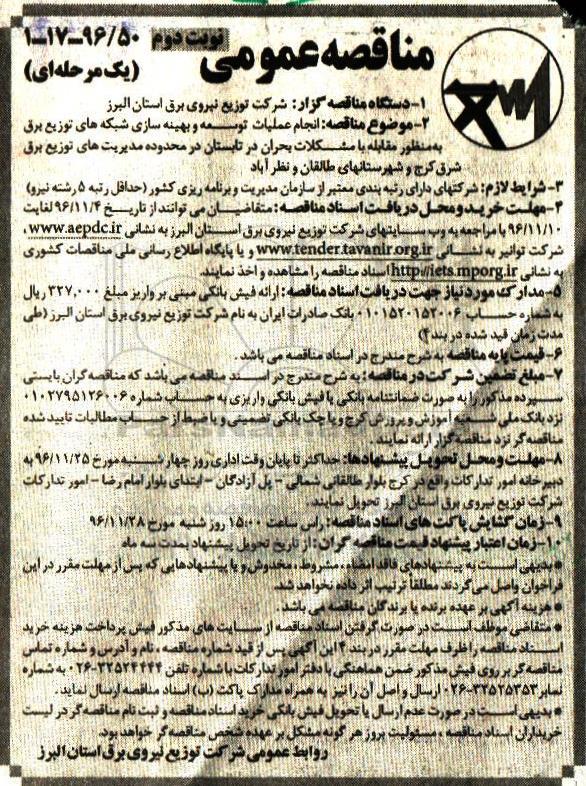 مناقصه عمومی نوبت دوم ۹۶/۵۰-۱۷-۱
(یک مرحله‌ای)
۱-دستگاه مناقصه گزار: شرکت توزیع نیروی برق استان البرز
۲-موضوع مناقصه: انجام عملیات توسعه و بهینه سازی شبکه های توزیع برق
به‌منظور مقابله با مشکلات بحران در تابستان در محدوده مدیریت های توزیع برق
شرق کرج و شهرستانهای طالقان و نظرآباد
۳-شرایط لازم: شرکتهای دارای رتبه بندی معتبر از سازمان مدیریت و برنامه ریزی کشور (حداقل رتبه ۵ رشته نیرو)
۴-مهلت خرید و محل دریافت اسناد مناقصه: متقاضیان می توانند از تاریخ ۹۶/۱۱/۴ لغایت
۹۶/۱۱/۱۰ با مراجعه به وب سایتهای شرکت توزیع نیروی برق استان البرز به نشانی www.aepdc.ir،
شرکت توانیر به نشانی www.tender.tavanir.org.ir و یا پایگاه اطلاع رسانی ملی مناقصات کشوری
به نشانی http://iets.mporg.ir اسناد مناقصه را مشاهده و اخذ نمایند.
۵-مدارک مورد نیاز جهت دریافت اسناد مناقصه: ارائه فیش بانکی مبنی بر واریز مبلغ ۳۲۷,۰۰۰ ریال
به شماره حساب ۰۱۰۱۵۲۰۱۵۲۰۰۶ بانک صادرات ایران به نام شرکت توزیع نیروی برق استان البرز (طی
مدت زمان قید شده در بند ۴)
۶-قیمت پایه مناقصه به شرح مندرج در اسناد مناقصه می باشد.
۷-مبلغ تضمین شرکت در مناقصه: به شرح مندرج در اسناد مناقصه می باشد که مناقصه گران بایستی
سپرده مذکور را به صورت ضمانتنامه بانکی یا فیش بانکی واریزی به حساب شماره ۰۱۰۲۷۹۵۱۲۶۰۰۶
نزد بانک ملی شعبه آموزش و پرورش کرج و یا چک بانکی تضمینی و یا ضبط از حساب مطالبات تایید شده
مناقصه گر نزد مناقصه گزار ارائه نمایند.
۸-مهلت و محل تحویل پیشنهادها: حداکثر تا پایان وقت اداری روز چهارشنبه مورخ ۹۶/۱۱/۲۵ به
دبیرخانه امور تدارکات واقع در کرج بلوار طالقانی شمالی - پل آزادگان - ابتدای بلوار امام رضا - امور تدارکات
شرکت توزیع نیروی برق استان البرز تحویل نمایند.
۹-زمان گشایش پاکت های اسناد مناقصه: راس ساعت ۱۵:۰۰ روز شنبه مورخ ۹۶/۱۱/۲۸
۱۰-زمان اعتبار پیشنهاد قیمت مناقصه گران: از تاریخ تحویل پیشنهاد بمدت سه ماه
* بدیهی است به پیشنهادهای فاقد امضاء، مشروط، مخدوش و یا پیشنهادهایی که پس از مهلت مقرر در این
فراخوان واصل می گردند مطلقا ترتیب اثر داده نخواهد شد.
* هزینه آگهی بر عهده برنده یا برندگان مناقصه می باشد.
* متقاضی موظف است در صورت گرفتن اسناد مناقصه از سایت های مذکور فیش پرداخت هزینه خرید
اسناد مناقصه را ظرف مهلت مقرر در بند ۴ این آگهی پس از قید شماره مناقصه، نام و آدرس و شماره تماس
مناقصه گر بر روی فیش مذکور ضمن هماهنگی با دفتر امور تدارکات با شماره تلفن ۳۲۵۲۴۴۴۴-۰۲۶ به شماره
نمابر ۳۲۵۲۵۳۵۳-۰۲۶ ارسال و اصل آن را نیز به همراه مدارک پاکت (ب) اسناد مناقصه ارسال نماید.
* بدیهی است در صورت عدم ارسال یا تحویل فیش بانکی خرید اسناد مناقصه و ثبت نام مناقصه گر در لیست
خریداران اسناد مناقصه، مسئولیت بروز هر گونه مشکل بر عهده شخص مناقصه گر خواهد بود.
روابط عمومی شرکت توزیع نیروی برق استان البرز